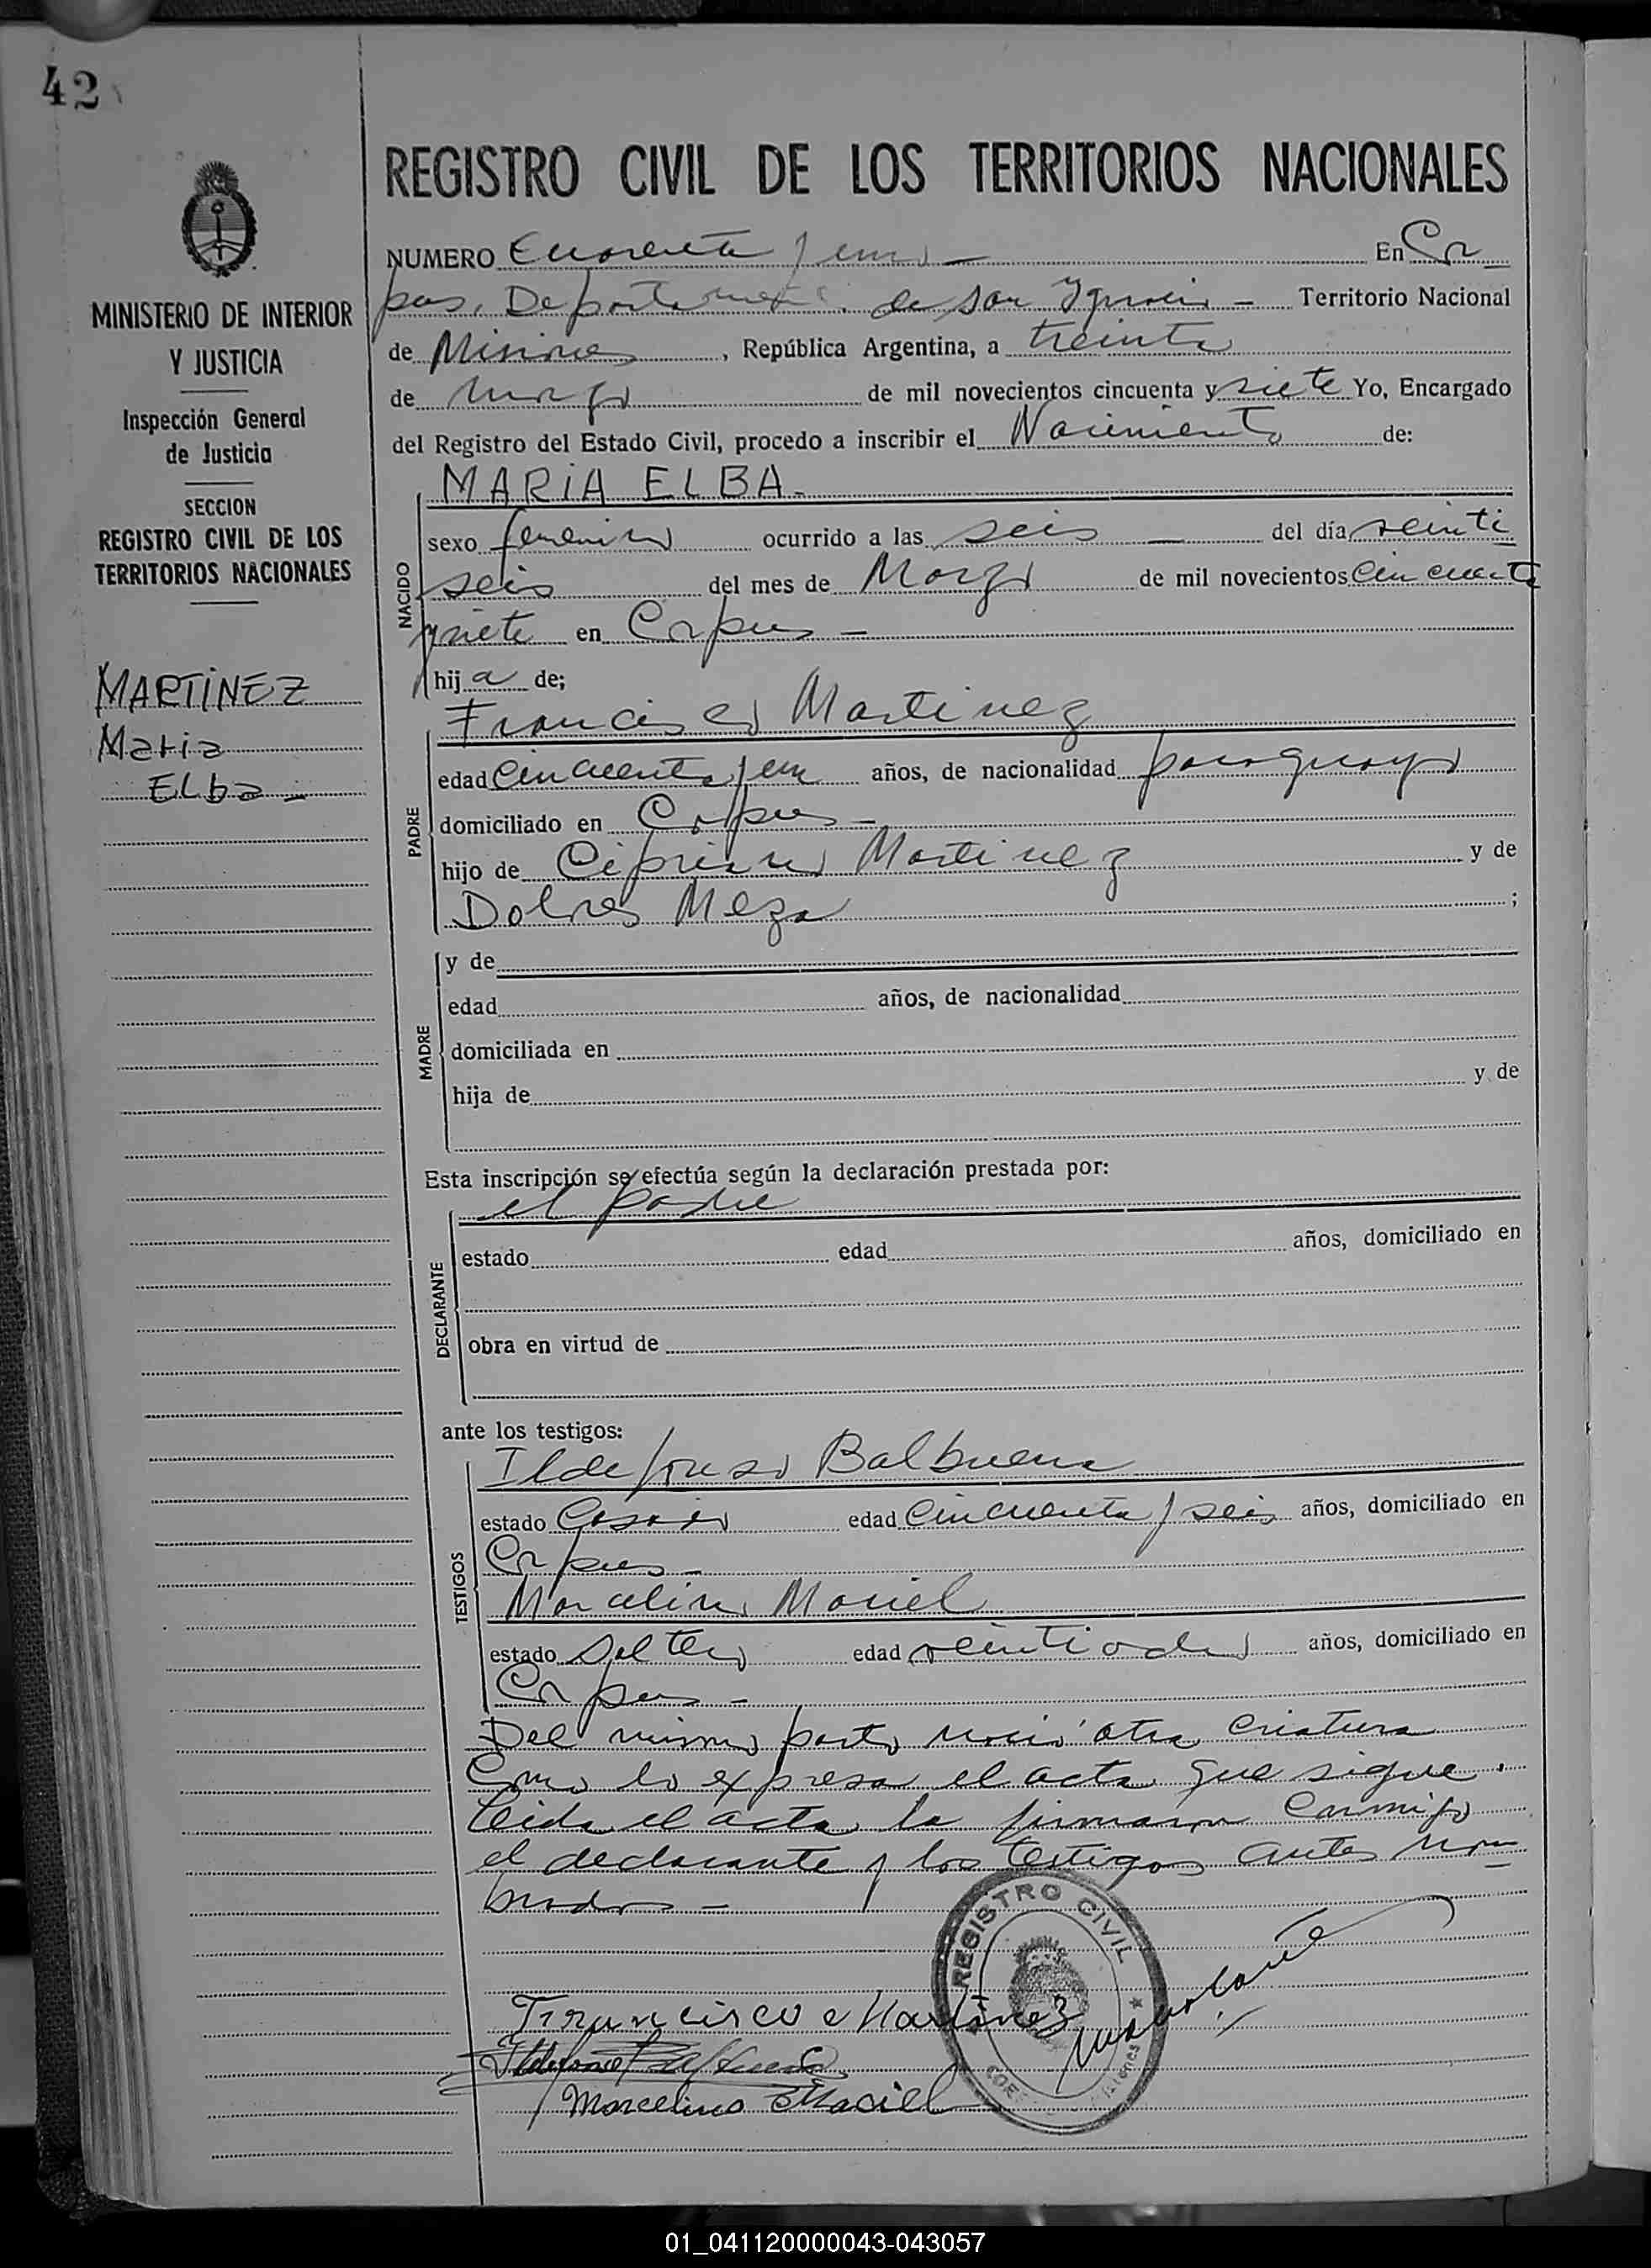 42
REGISTRO CIVIL DE LOS TERRITORIOS NACIONALES
MINISTERIO DE INTERIOR
Y JUSTICIA
Inspección General
de Justicia
SECCION
REGISTRO CIVIL DE LOS
TERRITORIOS NACIONALES
MARTINEZ
Maria
Elba -
NUMERO Cuarenta y uno - En Cor
pus, Departamento de San Ignacio - Territorio Nacional
de Misiones, República Argentina, a treinta
de marzo de mil novecientos cincuenta y siete Yo, Encargado
del Registro del Estado Civil, procedo a inscribir el Nacimiento de:
NACIDO
MARIA ELBA -
sexo femenino ocurrido a las seis - del día veinti
seis del mes de Marzo de mil novecientos cincuenta
y siete en Corpus -
hija de;
PADRE
Francisco Martinez
edad cincuenta y un años, de nacionalidad paraguayo
domiciliado en Corpus -
hijo de Cipriano Martinez y de
Dolores Meza ;
MADRE
y de
edad años, de nacionalidad
domiciliada en
hija de y de
Esta inscripción se efectúa según la declaración prestada por:
DECLARANTE
el padre
estado edad años, domiciliado en
obra en virtud de
ante los testigos:
TESTIGOS
Ildefonso Balbuena
estado Casado edad cincuenta y seis años, domiciliado en
Corpus -
Marcelino Maciel
estado Soltero edad veintiocho años, domiciliado en
Corpus -
Del mismo parto nació otra criatura
Como lo expresa el acta que sigue.
Leida el acta la firmaron conmigo
el declarante y los testigos antes nom
brados -
REGISTRO CIVIL
Francisco Martinez
Ildefonso Balbuena
Marcelino Maciel
01_041120000043-043057